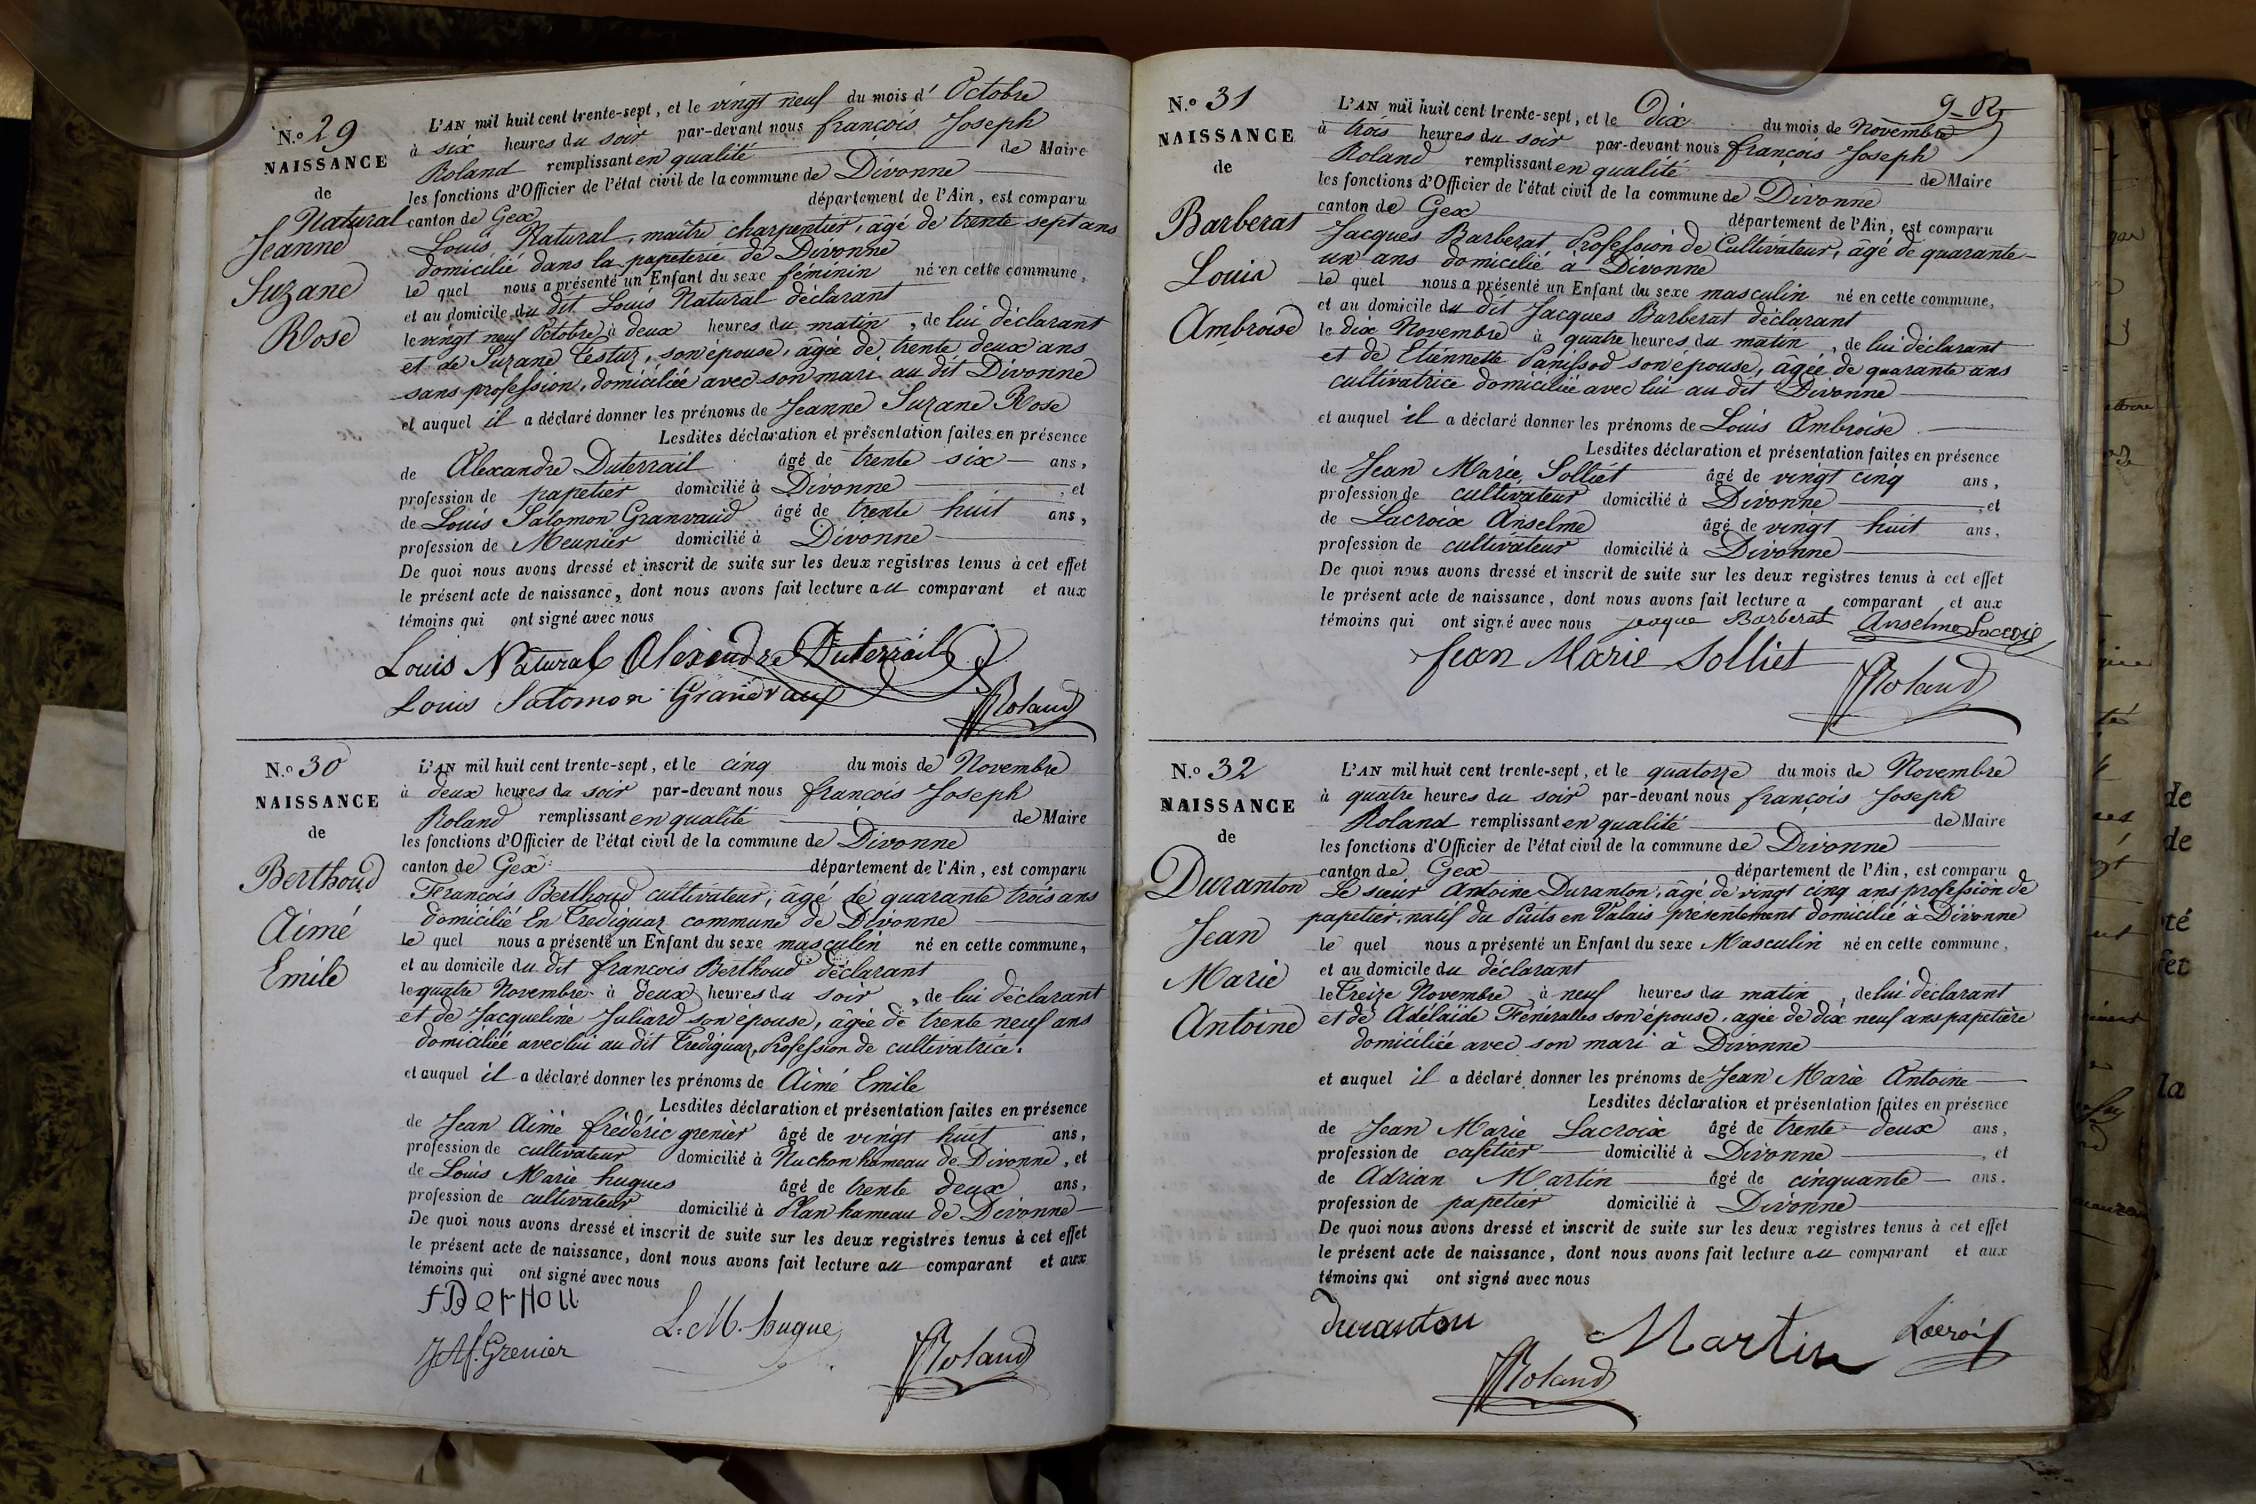 N.o 29
NAISSANCE
de
Natural
Jeanne
Suzane
Rose
L'AN mil huit cent trente-sept, et le vingt neuf du mois d' Octobre
à six heures du soir par-devant nous françois Joseph
Roland remplissant en qualité de Maire
les fonctions d'Officier de l'état civil de la commune de Divonne
canton de Gex département de l'Ain, est comparu
Louis Natural, maître charpentier, âgé de trente sept ans
domicilié dans la papeterie de Divonne
le quel nous a présenté un Enfant du sexe féminin né en cette commune,
et au domicile du dit Louis Natural déclarant
le vingt neuf Octobre à deux heures du matin, de lui déclarant
et de Suzane Testuz, son épouse, âgée de trente deux ans
sans profession, domiciliée avec son mari au dit Divonne
et auquel il a déclaré donner les prénoms de Jeanne Suzane Rose
Lesdites déclaration et présentation faites en présence
de Alexandre Duterrail âgé de trente six ans,
profession de papetier domicilié à Divonne, et
de Louis Salomon Granvaud âgé de trente huit ans,
profession de Meunier domicilié à Divonne
De quoi nous avons dressé et inscrit de suite sur les deux registres tenus à cet effet
le présent acte de naissance, dont nous avons fait lecture au comparant et aux
témoins qui ont signé avec nous
Louis Natural Alexandre Duterrail
Louis Salomon Grandvaux
Roland
N.o 30
NAISSANCE
de
Berthoud
Aimé
Emile
L'AN mil huit cent trente-sept, et le cinq du mois de Novembre
à deux heures du soir par-devant nous françois Joseph
Roland remplissant en qualité de Maire
les fonctions d'Officier de l'état civil de la commune de Divonne
canton de Gex département de l'Ain, est comparu
François Berthoud cultivateur, âgé de quarante trois ans
domicilié En Trediguaz commune de Divonne
le quel nous a présenté un Enfant du sexe masculin né en cette commune,
et au domicile du dit françois Berthoud déclarant
le quatre Novembre à deux heures du soir, de lui déclarant
et de Jacqueline Juliard son épouse, âgée de trente neuf ans
domiciliée avec lui au dit Trediguaz, Profession de cultivatrice.
et auquel il a déclaré donner les prénoms de Aimé Emile
Lesdites déclaration et présentation faites en présence
de Jean Aimé frédéric grenier âgé de vingt huit ans,
profession de cultivateur domicilié à Nuchon hameau de Divonne, et
de Louis Marie hugues âgé de trente deux ans,
profession de cultivateur domicilié à Plan hameau de Divonne
De quoi nous avons dressé et inscrit de suite sur les deux registres tenus à cet effet
le présent acte de naissance, dont nous avons fait lecture au comparant et aux
témoins qui ont signé avec nous
L. M. hugue
Grenier
Roland
N.o 31
NAISSANCE
de
Barberat
Louis
Ambroise
L'AN mil huit cent trente-sept, et le Dix du mois de Novembre
à trois heures du soir par-devant nous françois Joseph
Roland remplissant en qualité de Maire
les fonctions d'Officier de l'état civil de la commune de Divonne
canton de Gex département de l'Ain, est comparu
Jacques Barberat Profession de Cultivateur, âgé de quarante
un ans domicilié à Divonne
le quel nous a présenté un Enfant du sexe masculin né en cette commune,
et au domicile du dit Jacques Barberat déclarant
le dix Novembre à quatre heures du matin, de lui déclarant
et de Etiennette Panissod son épouse, âgée de quarante ans
cultivatrice domiciliée avec lui au dit Divonne
et auquel il a déclaré donner les prénoms de Louis Ambroise
Lesdites déclaration et présentation faites en présence
de Jean Marie Solliet âgé de vingt cinq ans,
profession de cultivateur domicilié à Divonne, et
de Lacroix Anselme âgé de vingt huit ans,
profession de cultivateur domicilié à Divonne
De quoi nous avons dressé et inscrit de suite sur les deux registres tenus à cet effet
le présent acte de naissance, dont nous avons fait lecture a comparant et aux
témoins qui ont signé avec nous jeaque Barberat Anselme Lacroix
Jean Marie Solliet
Roland
N.o 32
NAISSANCE
de
Duranton
Jean
Marie
Antoine
L'AN mil huit cent trente-sept, et le quatorze du mois de Novembre
à quatre heures du soir par-devant nous françois Joseph
Roland remplissant en qualité de Maire
les fonctions d'Officier de l'état civil de la commune de Divonne
canton de Gex département de l'Ain, est comparu
Le sieur Antoine Duranton, âgé de vingt cinq ans, profession de
papetier, natif du Puits en Valais présentement domicilié à Divonne
le quel nous a présenté un Enfant du sexe Masculin né en cette commune,
et au domicile du déclarant
le Treize Novembre à neuf heures du matin, de lui déclarant
et de Adélaïde Féneralles son épouse, agée de dix neuf ans papetière
domiciliée avec son mari à Divonne
et auquel il a déclaré donner les prénoms de Jean Marie Antoine
Lesdites déclaration et présentation faites en présence
de Jean Marie Lacroix âgé de trente deux ans,
profession de cafetier domicilié à Divonne, et
de Adrian Martin âgé de cinquante ans.
profession de papetier domicilié à Divonne
De quoi nous avons dressé et inscrit de suite sur les deux registres tenus à cet effet
le présent acte de naissance, dont nous avons fait lecture au comparant et aux
témoins qui ont signé avec nous
duranton Martin Lacroix
Roland